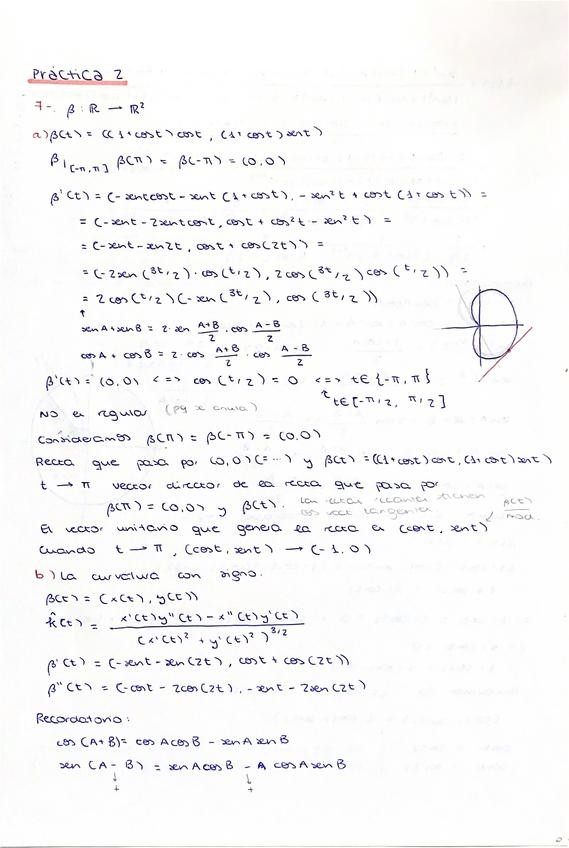 Práctica 2
7-. β : ℝ → ℝ²
a) β(t) = ((1+cost) cost, (1+cost) sent)
β|[-π,π] β(π) = β(-π) = (0,0)
β'(t) = (-sentcost - sent (1+cost), -sen²t + cost (1+cos t)) =
= (-sent - 2sentcost, cost + cos²t - sen²t) =
= (-sent - sen2t, cost + cos(2t)) =
= (-2sen(3t/2) · cos(t/2), 2cos(3t/2) cos(t/2)) =
= 2cos(t/2) (-sen(3t/2), cos(3t/2))
↑
senA + senB = 2 · sen (A+B)/2 · cos (A-B)/2
cosA + cosB = 2 · cos (A+B)/2 · cos (A-B)/2
β'(t) = (0,0) <=> cos(t/2) = 0 <=> t ∈ {-π, π}
↑ t ∈ [-π/2, π/2]
No es regular (pq se anula)
Consideramos β(π) = β(-π) = (0,0)
Recta que pasa por (0,0) (= ...) y β(t) = ((1+cost) cost, (1+cost) sent)
t → π vector director de la recta que pasa por
β(π) = (0,0) y β(t). las rectas secantes tienen β(t)
El vector unitario que genera la recta es (cost, sent)
Cuando t → π, (cost, sent) → (-1, 0)
b) La curvatura con signo.
β(t) = (x(t), y(t))
k̂(t) = (x'(t)y''(t) - x''(t)y'(t)) / (x'(t)² + y'(t)²)^3/2
β'(t) = (-sent - sen(2t), cost + cos(2t))
β''(t) = (-cost - 2cos(2t), -sent - 2sen(2t)
Recordatorio:
cos (A+B) = cosAcosB - senAsenB
sen (A - B) = senAcosB - A cosAsenB
↓ ↓
+ +